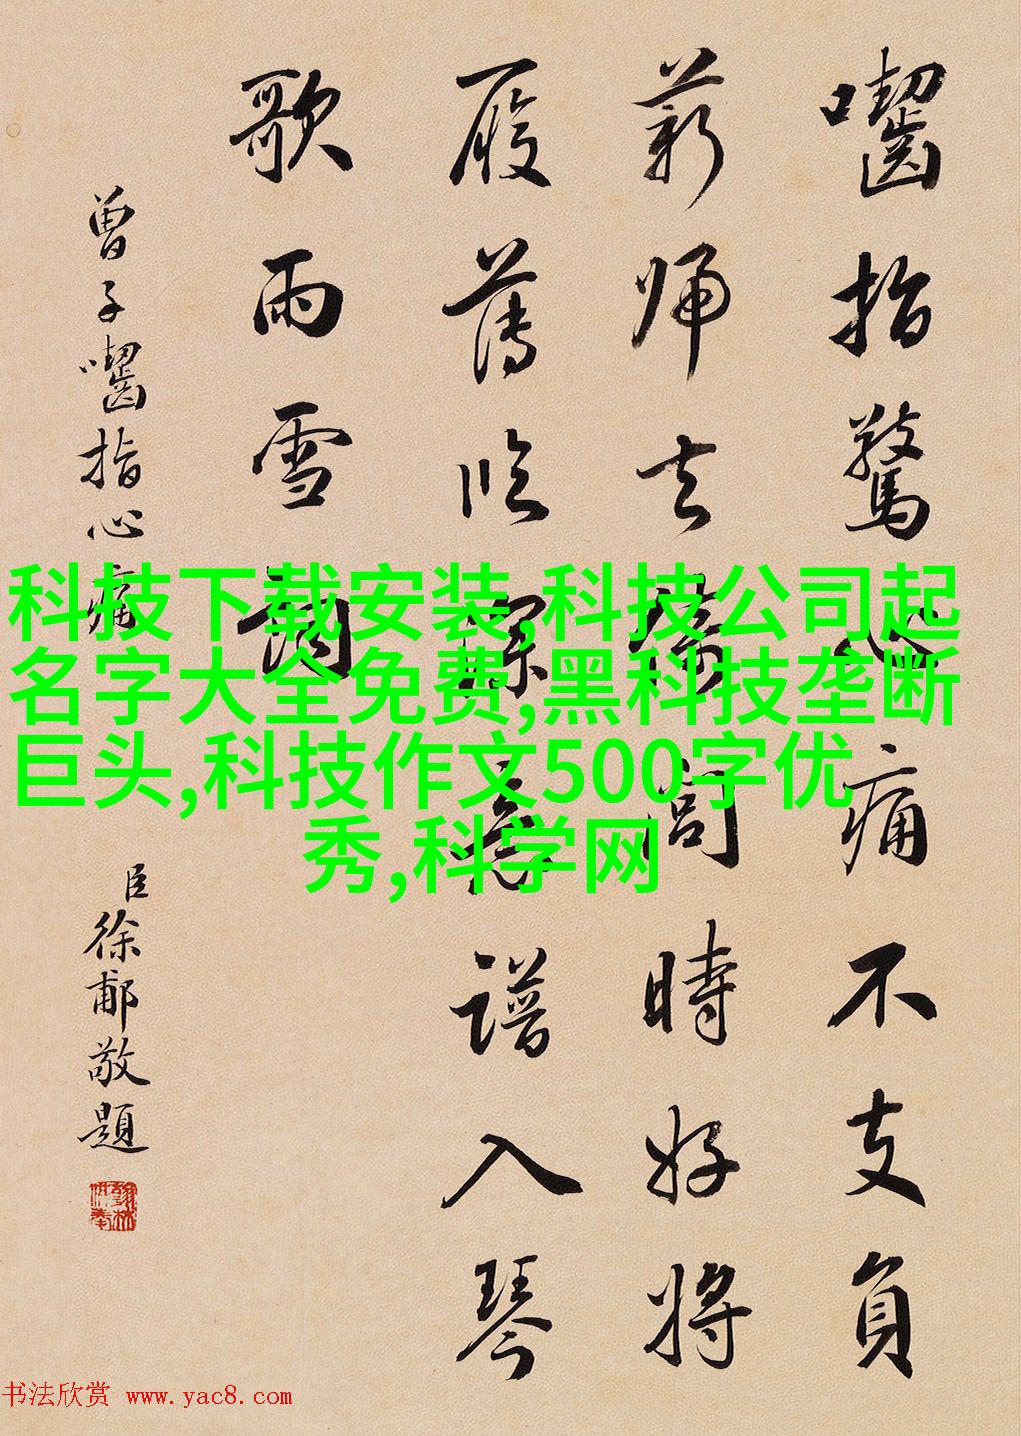 囓指驚心痛不支負
薪歸去問時好將
履薄臨深意譜入琴
歌雨雪詞
曾子囓指心痛
臣徐郙敬題
科技下载安装,科技公司起
名字大全免费,黑科技垄断
巨头,科技作文500字优
秀,科学网
书法欣赏 www.yac8.com